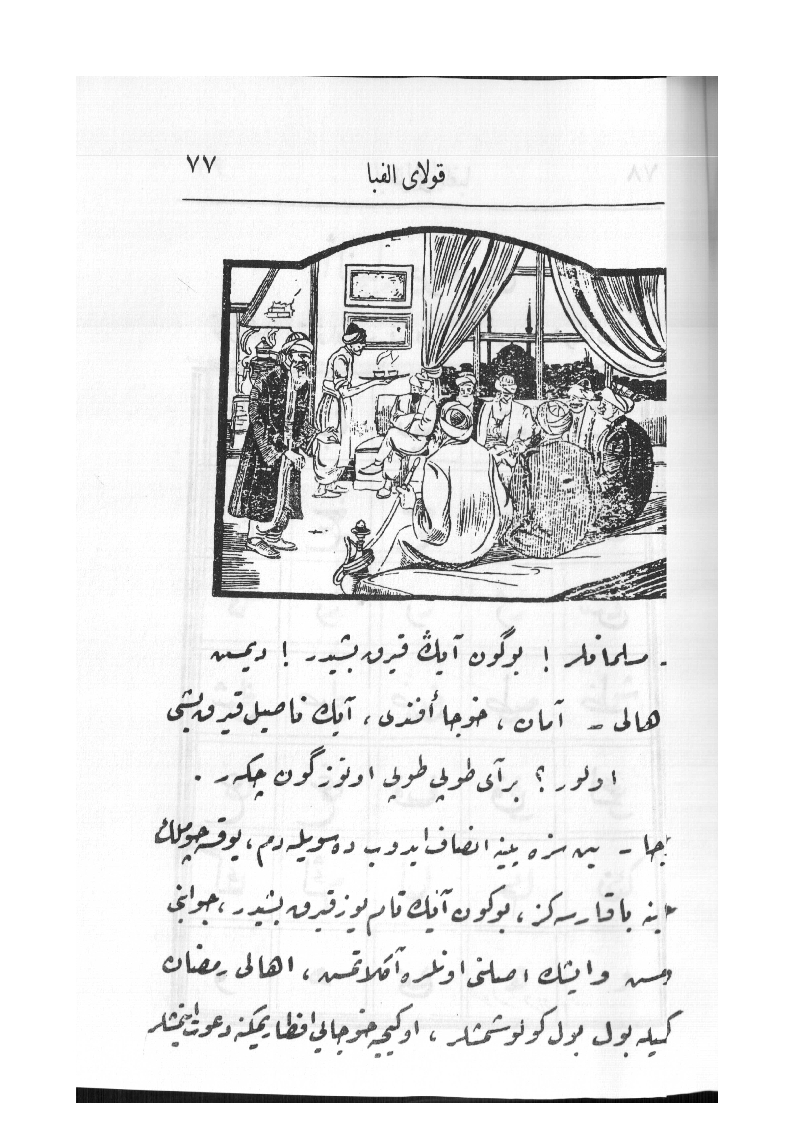 قولای الفبا
۷۷
ـ مسلمانلر ! بوگون آیڭ قیرق بشیدر ! دیمس
هالی ـ آمان ، خوجا أفندی ، آیڭ ناصیل قیرق بشی
اولور ؟ بر آی طوپی طوپی اوتوز گون چکر .
جا ـ بن سزه ینه انصاف ایدوب ده سویله دم ، یوقسه چوملك
ینه باقارسه کز ، بوکون آیڭ تام یوز قیرق بشیدر ، جوابنی
مس وایشك اصلنی اونلره آڭلاتمس ، اهالی رمضان
بول بول کولوشمشلر ، اوکیجه خوجایی افطار یمکنه دعوت ایتمشلر